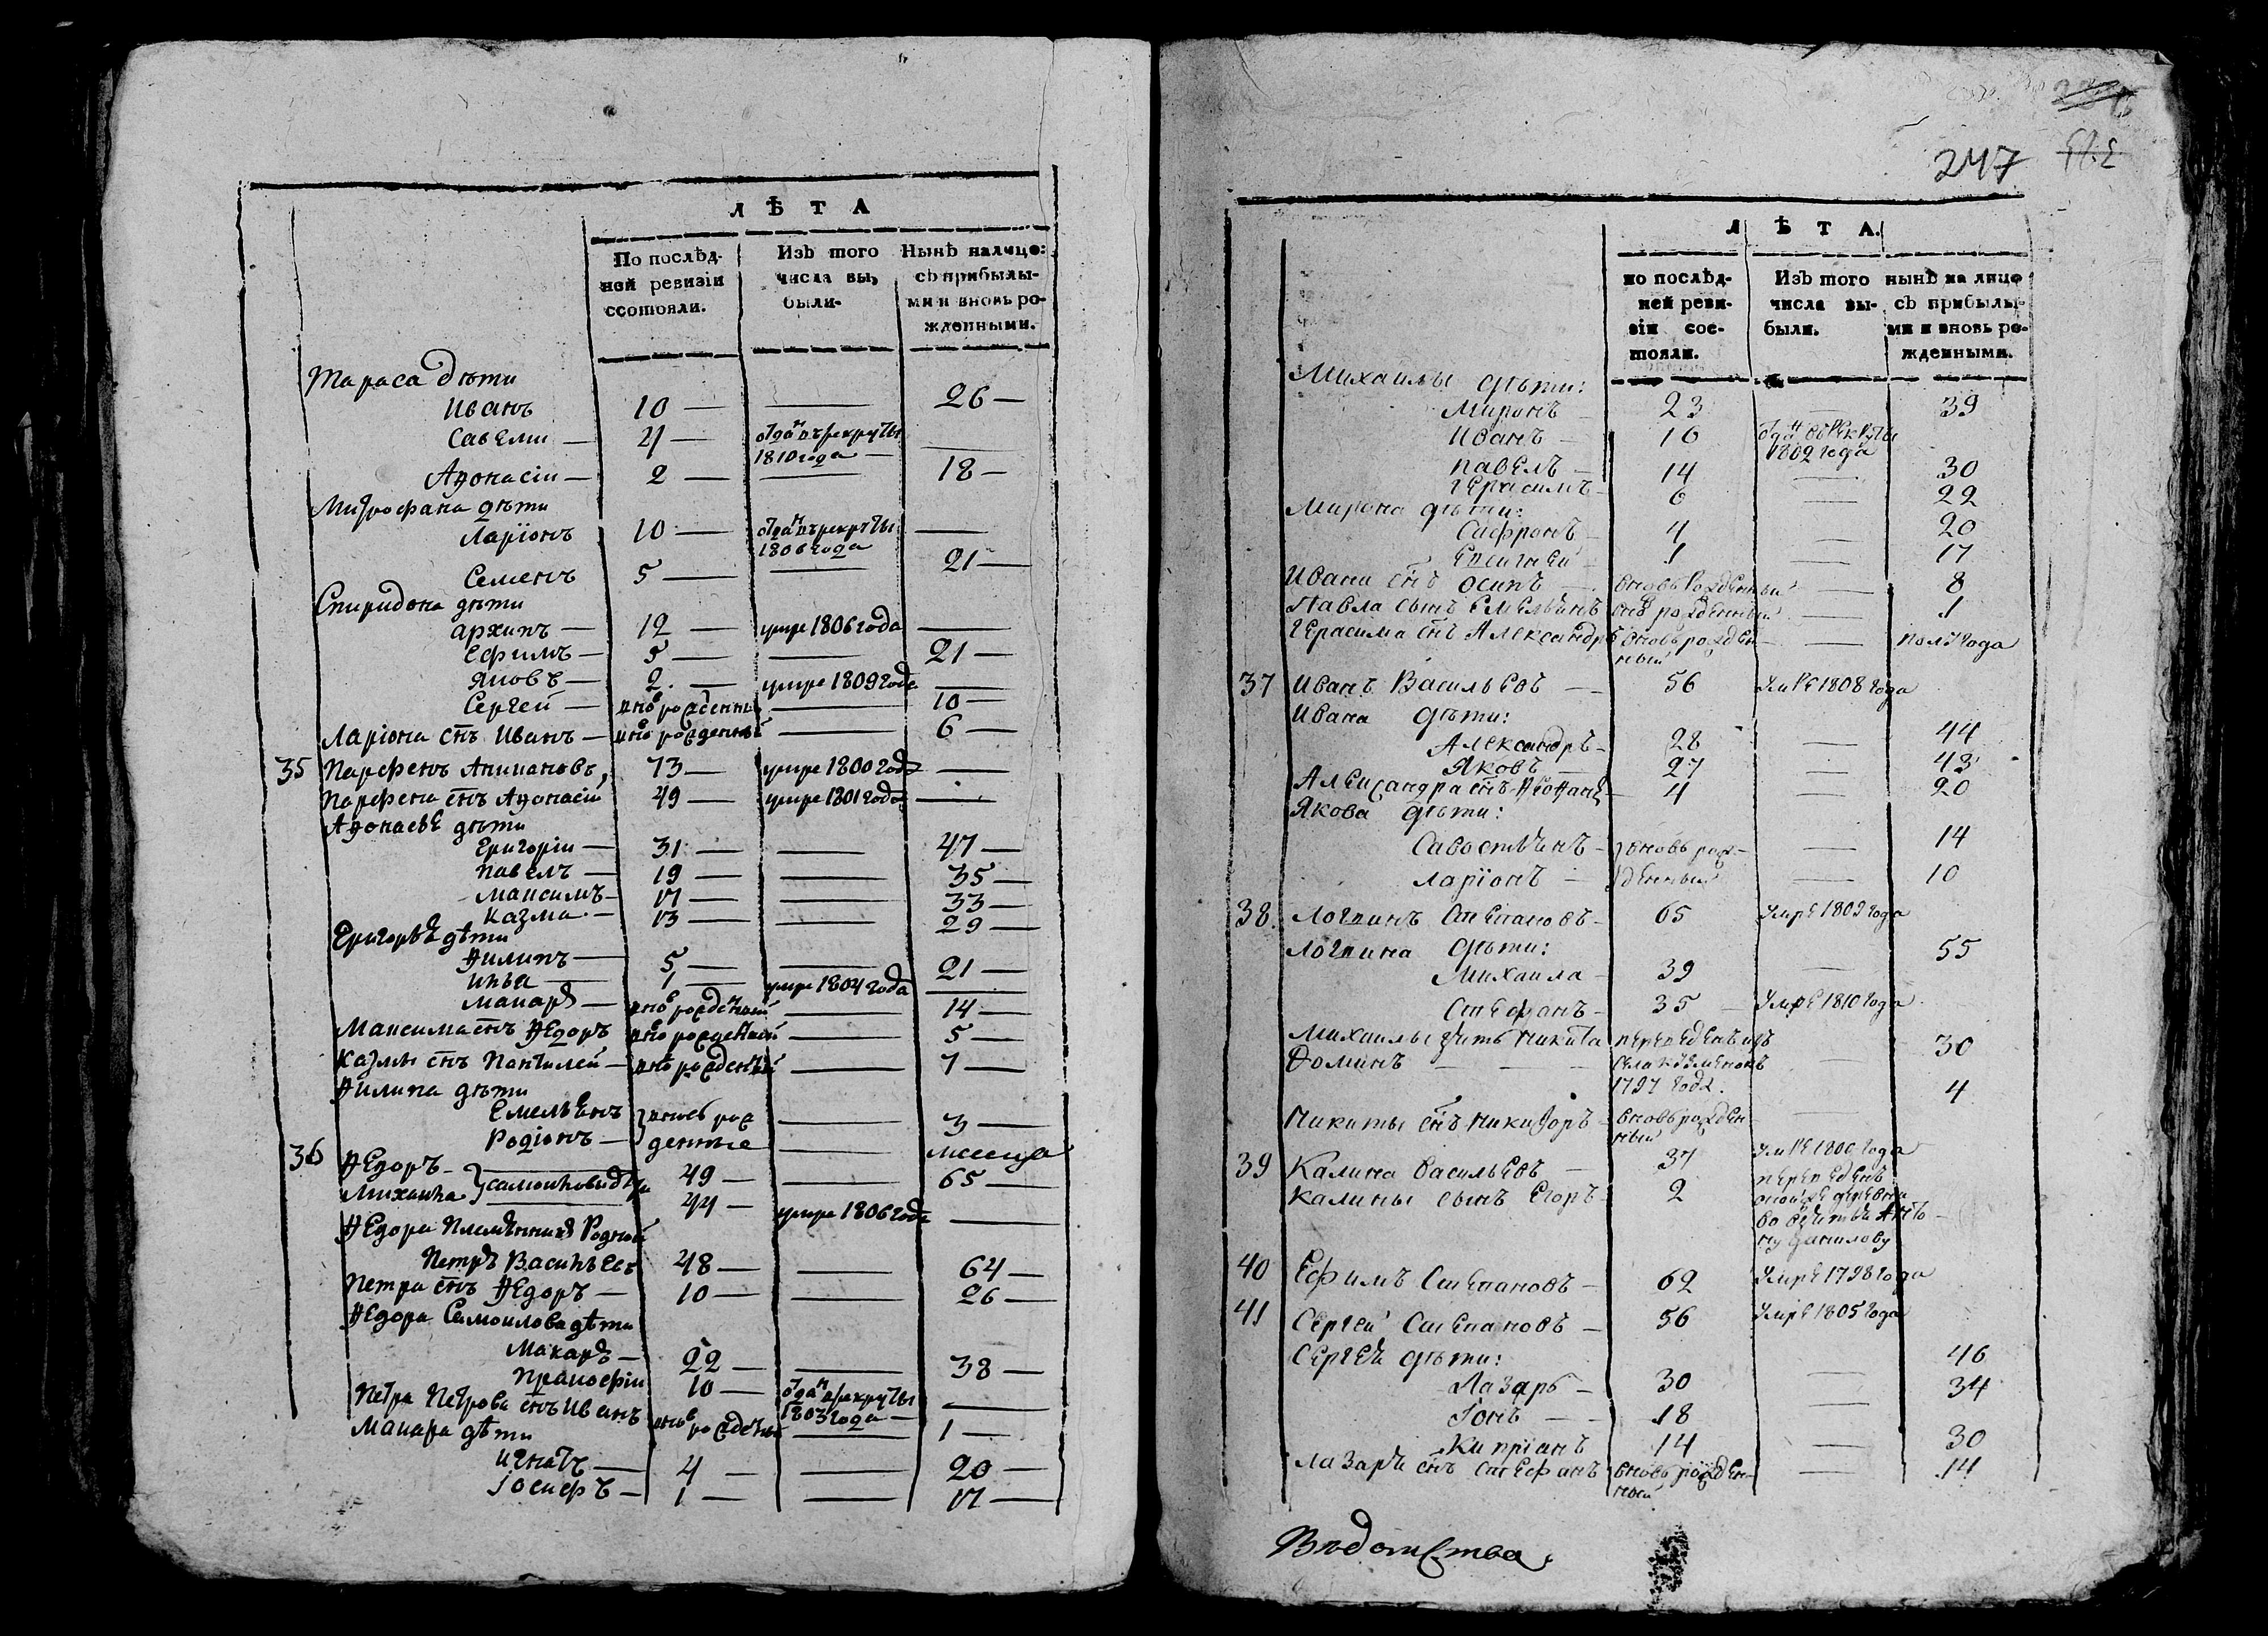 Л Ѣ Т А
По послѣд-
ней ревизіи
ссотояли.
Изъ того
числа вы,
были-
Нынѣ налицо:
съ прибылы-
ми и вновь ро-
жденными.
Тараса дѣти
Иванъ 10 — — 26 —
Савели — 4 — отдан въ рекруты
1810 года —
Афонасіи — 2 — — 18 —
Митрофана дѣти
Ларіонъ 10 — отдан въ рекруты —
1806 года
Семенъ 5 — — 21 —
Спиридона дѣти
архипъ — 12 — умре 1806 года —
Ефимъ — 5 — — 21 —
Яковъ — 2. — умре 1809 года —
Сергей — внов рожденны — 10 —
Ларіона снъ Иванъ — внов рожденный — 6 —
35 Парфенъ 73 — умре 1800 года —
Парфена снъ Афонасій 49 — умре 1801 года —
Афонасьѣ дѣти
Григоріи — 31 — — 47 —
павелъ — 19 — — 35 —
Максимъ — 17 — — 33 —
Казма — 13 — — 29 —
Григорьѣ дѣти
Филипъ — 5 — — 21 —
Илья — 1 — умре 1804 года —
Макаръ — внов рожденный — 14 —
Максима снъ Федоръ внов рожденный — 5 —
Казмы снъ Пантилей — внов рожденный — 7 —
Филипа дѣти
Емельянъ } вновь рож — 3 —
Родіонъ — денные — месеца
36 Федоръ — } самоиловы дѣти 49 — — 65 —
Михаила 44 — умре 1806 года —
Федора племянникъ Родной
Петръ Васильевъ 48 — — 64 —
Петра снъ Федоръ — 10 — — 26 —
Федора Самоилова дѣти
Макаръ — 22 — — 38 —
Пракофіи 10 — отдан в рекруты —
1803 года —
Петра Петрова снъ Иванъ внов рожденый — 1 —
Макара дѣти
Игнатъ — 4 — — 20 —
Іосифъ — 1 — — 17 —
247
Л Ѣ Т А.
по послѣд-
ней реви-
зіи сос-
тояли.
Изъ того
числа вы-
были.
нынѣ на лицо
съ прибылы-
ми и вновь ро-
жденными.
Михаилы дѣти:
Миронъ 23 — 39
Иванъ — 16 отдан въ рекруты
1802 года
павелъ — 14 — 30
Герасимъ — 6 — 22
Мирона дѣти:
Сафронъ — 4 — 20
Евсигней — 1 — 17
Ивана снъ осипъ — вновь рожденный — 8
Павла сынъ Емельянъ внов рожденный — 1
Герасима снъ Александръ вновь рожден- — полъ года
ный
37 Иванъ Васильевъ — 56 умре 1808 года
Ивана дѣти:
Александръ — 28 — 44
Яковъ — 27 — 43
Александра снъ Феофанъ — 4 — 20
Якова дѣти:
Савостьянъ — } вновь рож- — 14
Ларіонъ — } денный — 10
38. Логвинъ Степановъ — 65 умре 1809 года
Логвина дѣти:
Михаила — 39 — 55
Стефанъ — 35 — умре 1810 года
Михаилы зять Никита переведенъ изъ 30
Фоминъ — — села —
1797 года. 4
Никиты снъ Никифоръ вновь рожден- —
ный
39 Калина Васильевъ — 37 умре 1800 года
Калины сынъ Егоръ 2 переведенъ
деревни
40 Ефимъ Степановъ — 62 умре 1798 года
41 Сергей Степановъ — 56 умре 1805 года
Сергѣя дѣти:
Лазарь — 30 — 46
Іонъ — 18 — 34
Кипріанъ 14 — 30
Лазаря снъ Стефанъ вновь рожден- — 14
ный
Вѣдомства.